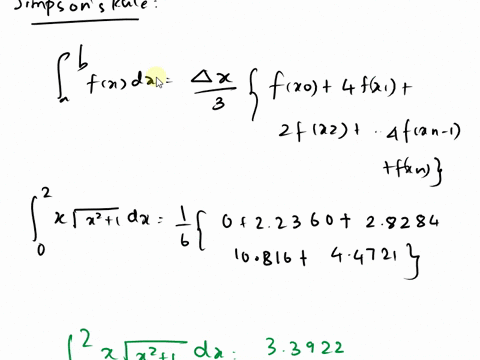 Simpson's Rule:
∫ₐᵇ f(x) dx = Δx/3 { f(x0) + 4 f(x1) +
2f(x2) + .. 4f(xn-1)
+f(xn) }
∫₀² x√(x²+1) dx = 1/6 { 0 + 2.2360 + 2.8284
10.816 + 4.4721 }
∫² x√(x²+1) dx = 3.3922